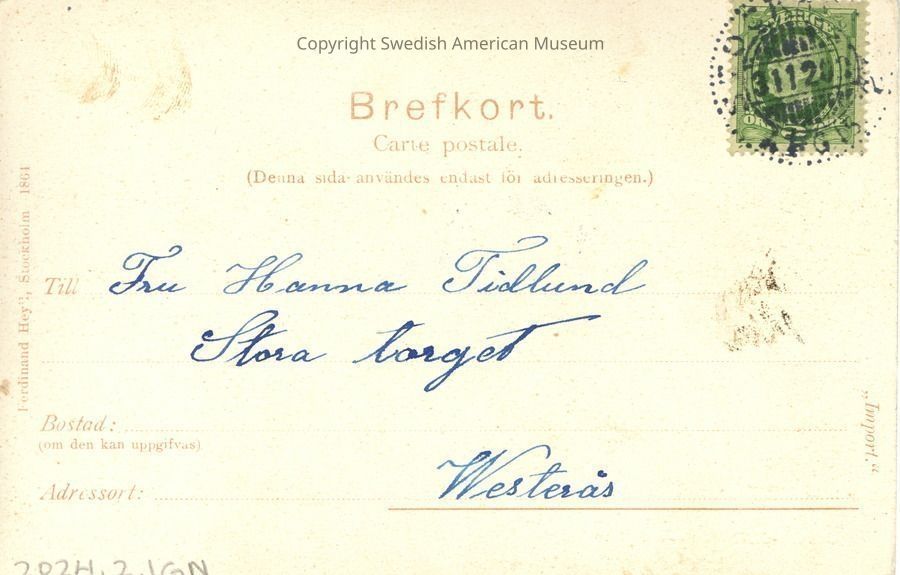 Copyright Swedish American Museum
SVERIGE
Brefkort.
Carte postale.
(Denna sida användes endast för adresseringen.)
Ferdinand Hey'l, Stockholm 1861
Till Fru Hanna Tidlund
Stora torget
Bostad:
(om den kan uppgifvas)
"Import."
Adressort: Westerås
2024.2.1GN